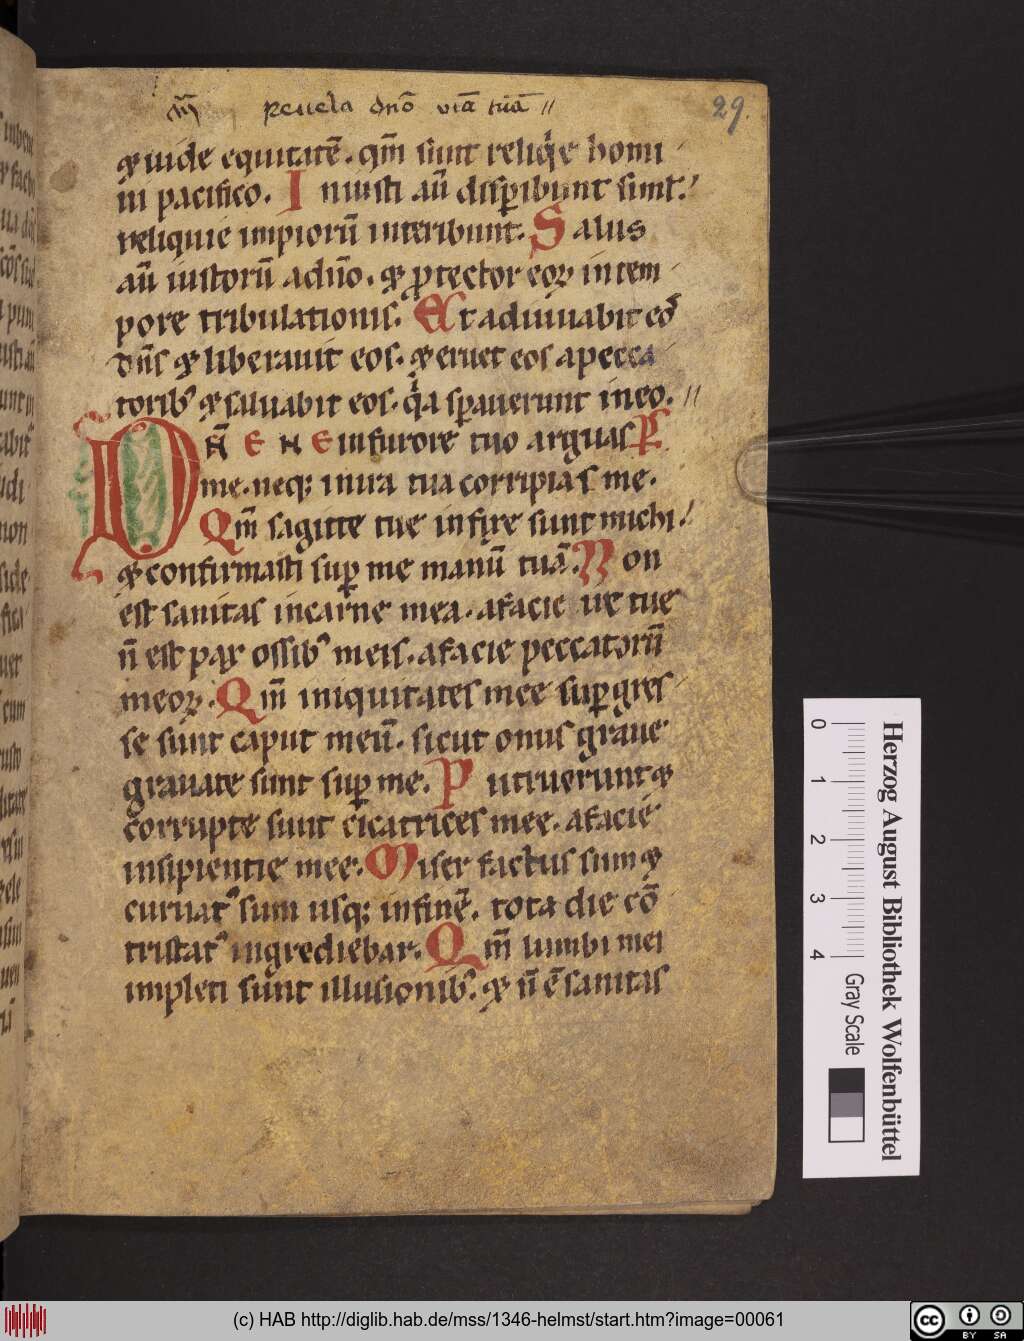 Reuela dnō uiā tuā //
29.
& uide equitatē. qm̄ sunt reliqͥe homi
ni pacifico. Iniusti aū disꝑibunt siml̄.
reliquie impiorū interibunt. Salus
aū iustorū a dn̄o. & ꝓtector eoꝝ in tem
pore tribulationis. Et adiuuabit eoſ
dn̄s & liberauit eos. & eruet eos a pecca
toribꝰ & saluabit eos. qͥa sꝑauerunt in eo. //
DN̄E NE in furore tuo arguas
me. neqꝫ in ira tua corripias me.
Qm̄ sagitte tue infixe sunt michi.
& confirmasti suꝑ me manū tuā. Non
est sanitas in carne mea. a facie ire tue
n̄ est pax ossibꝰ meis. a facie peccatorū
meoꝝ. Qm̄ iniquitates mee suꝑgres
se sunt caput meū. sicut onus graue
grauate sunt suꝑ me. Putruerunt &
corrupte sunt cicatrices mee. a facie
insipientie mee. Miser factus sum &
curuatꝰ sum usqꝫ in finē. tota die cō
tristatꝰ ingrediebar. Qm̄ lumbi mei
impleti sunt illusionibꝰ. & n̄ ē sanitas
0 1 2 3 4
Gray Scale
Herzog August Bibliothek Wolfenbüttel
(c) HAB http://diglib.hab.de/mss/1346-helmst/start.htm?image=00061
cc BY SA